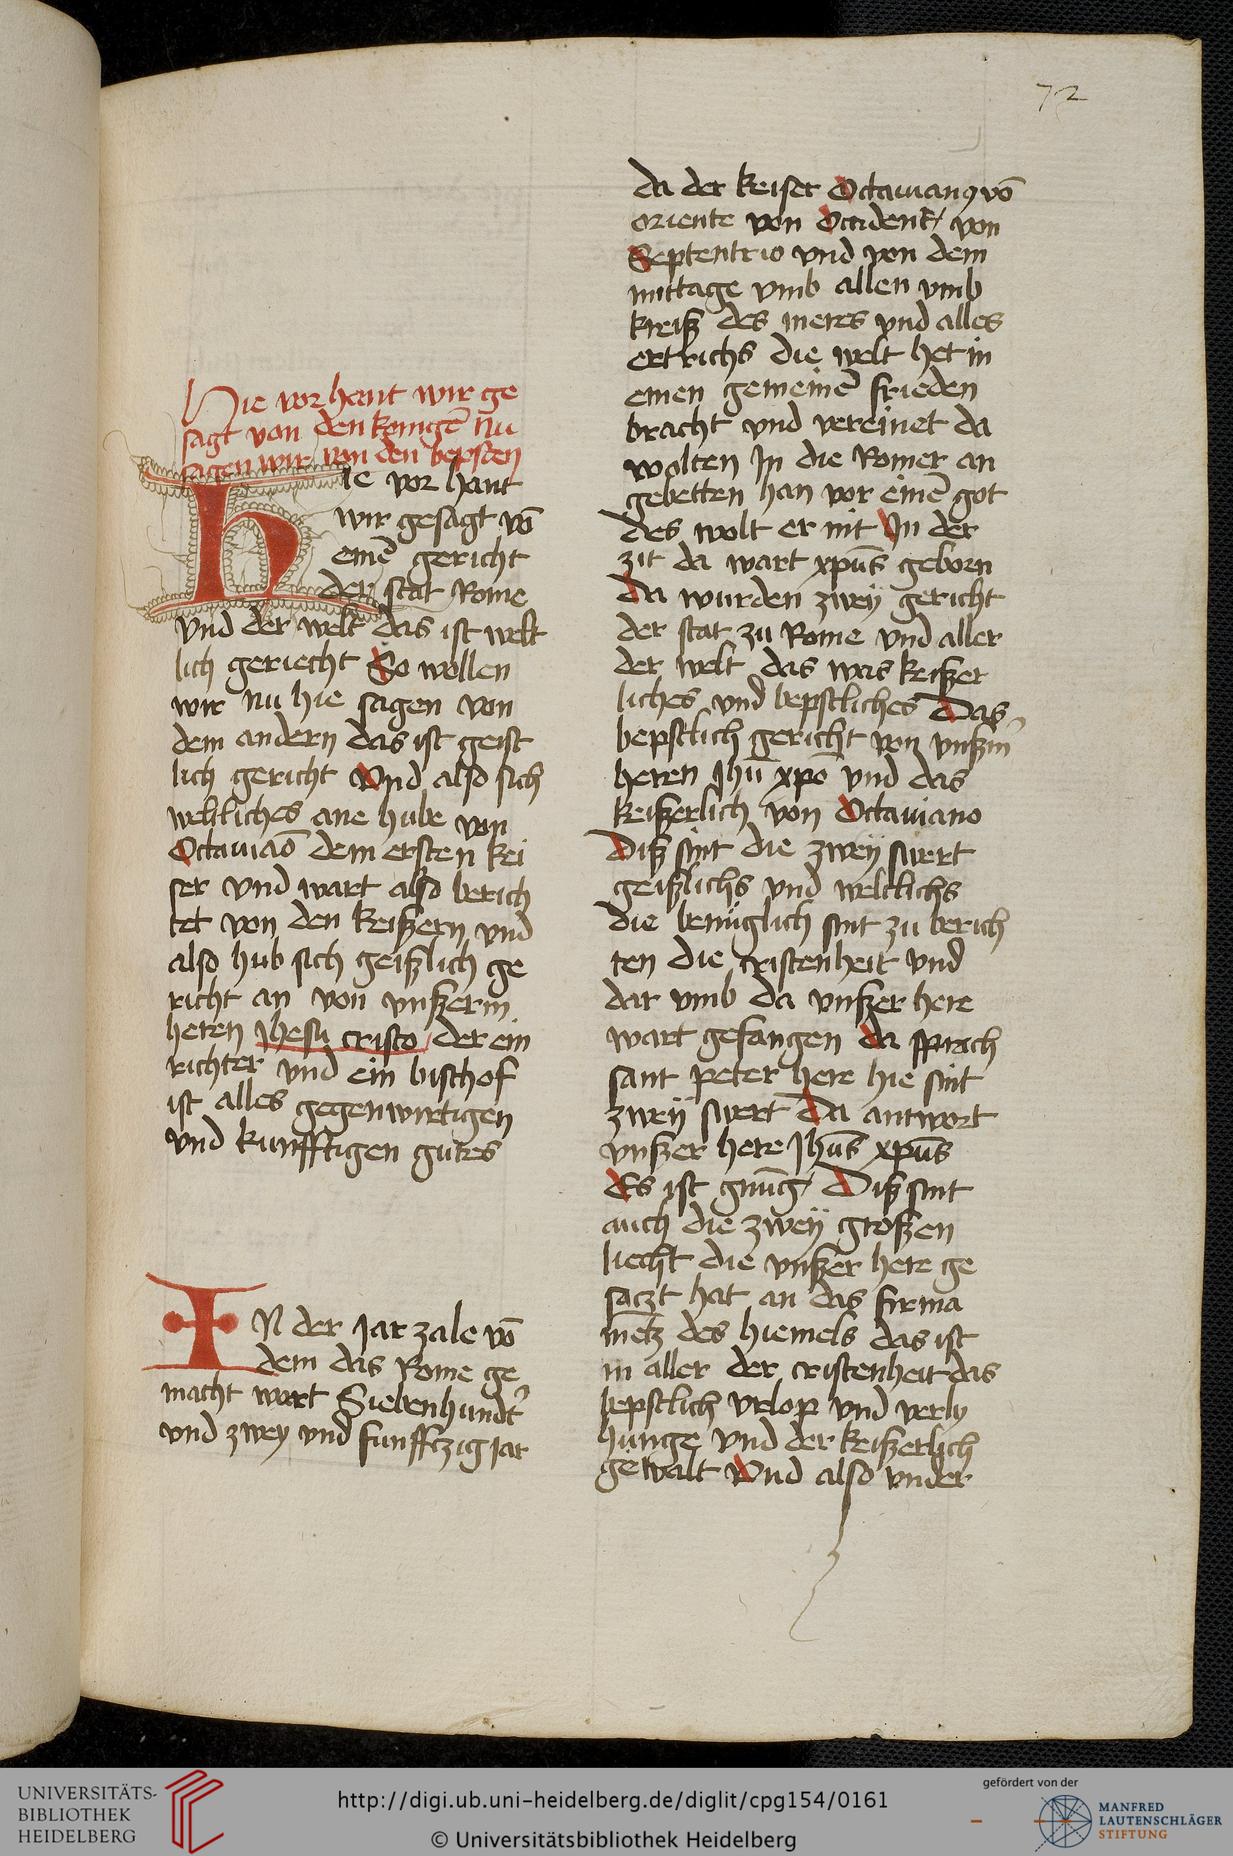 72
Hie vor hant wir ge
sagt von den konigē Nu
sagen wir von den bepsten
Hie vor hant
wir gesagt vō
einē gericht
der stat Rome
vnd der welt das ist welt
lich geriecht So wollen
wir nu hie sagen von
dem andern das ist geist
lich gericht Vnd also sich
weltliches ane hube von
Octauiāo dem ersten kei
ser vnd wart also berich
tet von den keißern vnd
also hub sich geißlich ge
richt an von vnßerm
heren Jhesu cristo der ein
richter vnd ein bischof
ist alles gegenwirtigen
vnd kunfftigen gutes
IN der Jar zale vō
dem das Rome ge
macht wart Siebenhundt᾽
vnd zwey vnd funffczig jar
da der keiser Octauianꝯ vō
oriente von Occident / von
Septentrio vnd von dem
mittage vmb allen vmb
kreiß des meres vnd alles
ertrichs die welt het in
einen gemeinē frieden
bracht vnd vereinet da
wolten Jn die Romer an
gebetten han vor einē got
des wolt er nit Jn der
zit da wart xpūs geborn
Da wurden zweÿ gericht
der stat zu Rome vnd aller
der welt das was keißer
liches vnd bepstliches Das
bepstlich gericht von vnßm᾽
heren Jhū xpō vnd das
keißerlich von Octauiano
Diß sint die zweÿ swert
geißlichs vnd weltlichs
die benüglich sint zu berich
ten die cristenheit vnd
dar vmb da vnßer here
wart gefangen da sprach
sant peter here hie sint
zweÿ swert Da antwort
vnßer here Jhūs xpūs
Es ist gnūg / Diß sint
auch die zweÿ großen
liecht die vnßer here ge
saczt hat an das firma
metz des hiemels das ist
in aller der cristenheit das
bepstlich vrlop vnd verly
hunge vnd der keißerlich
gewalt Vnd also vnder
UNIVERSITÄTS-
BIBLIOTHEK
HEIDELBERG
http://digi.ub.uni-heidelberg.de/diglit/cpg154/0161
© Universitätsbibliothek Heidelberg
gefördert von der
MANFRED
LAUTENSCHLÄGER
STIFTUNG